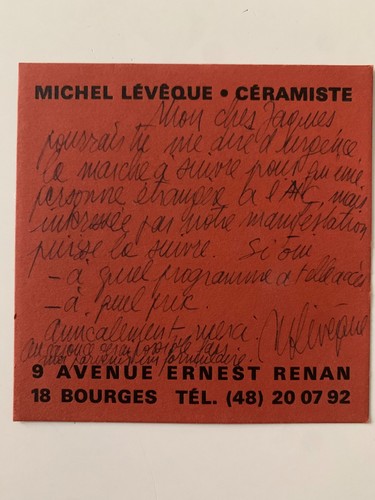 MICHEL LÉVÊQUE • CÉRAMISTE
Mon cher Jacques
pourrais tu me dire d'urgence
la marche à suivre pour qu'une
personne étrangère à l'AIC, mais
intéressée par notre manifestation,
puisse la suivre. Si oui
- à quel programme a t elle accès
- à quel prix.
amicalement, merci. MLévêque
formulaire.
9 AVENUE ERNEST RENAN
18 BOURGES TÉL. (48) 20 07 92